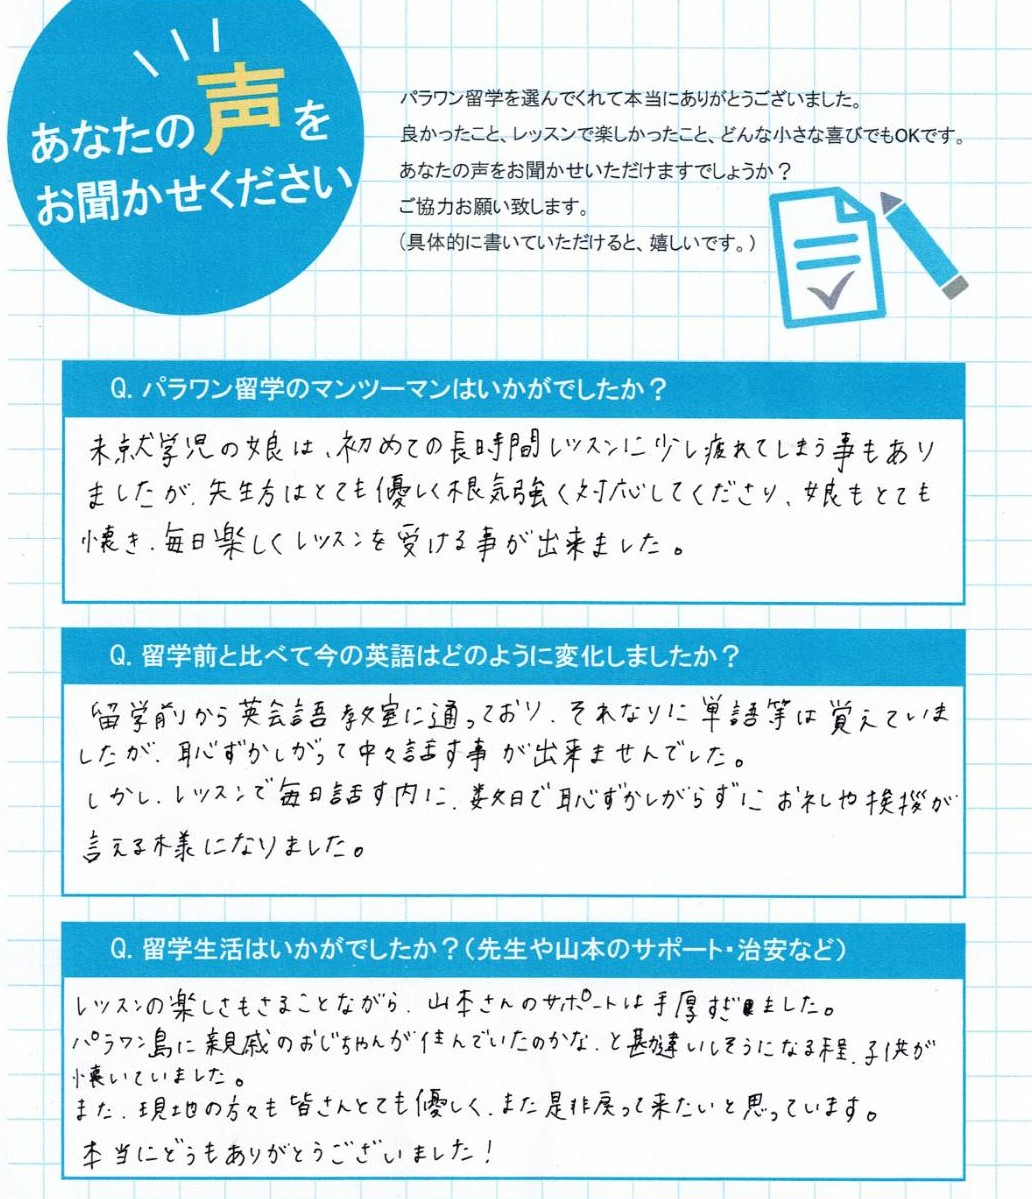 あなたの声を
お聞かせください
パラワン留学を選んでくれて本当にありがとうございました。
良かったこと、レッスンで楽しかったこと、どんな小さな喜びでもOKです。
あなたの声をお聞かせいただけますでしょうか？
ご協力お願い致します。
（具体的に書いていただけると、嬉しいです。）
Q. パラワン留学のマンツーマンはいかがでしたか？
未就学児の娘は、初めての長時間レッスンに少し疲れてしまう事もあり
ましたが、先生方はとても優しく根気強く対応してくださり、娘もとても
懐き、毎日楽しくレッスンを受ける事が出来ました。
Q. 留学前と比べて今の英語はどのように変化しましたか？
留学前から英会話教室に通っており、それなりに単語等は覚えていま
したが、恥ずかしがって中々話す事が出来ませんでした。
しかし、レッスンで毎日話す内に、数日で恥ずかしがらずにお礼や挨拶が
言える様になりました。
Q. 留学生活はいかがでしたか？（先生や山本のサポート・治安など）
レッスンの楽しさもさることながら、山本さんのサポートは手厚すぎました。
パラワン島に親戚のおじちゃんが住んでいたのかな、と勘違いしそうになる程、子供が
懐いていました。
また、現地の方々も皆さんとても優しく、また是非戻って来たいと思っています。
本当にどうもありがとうございました！